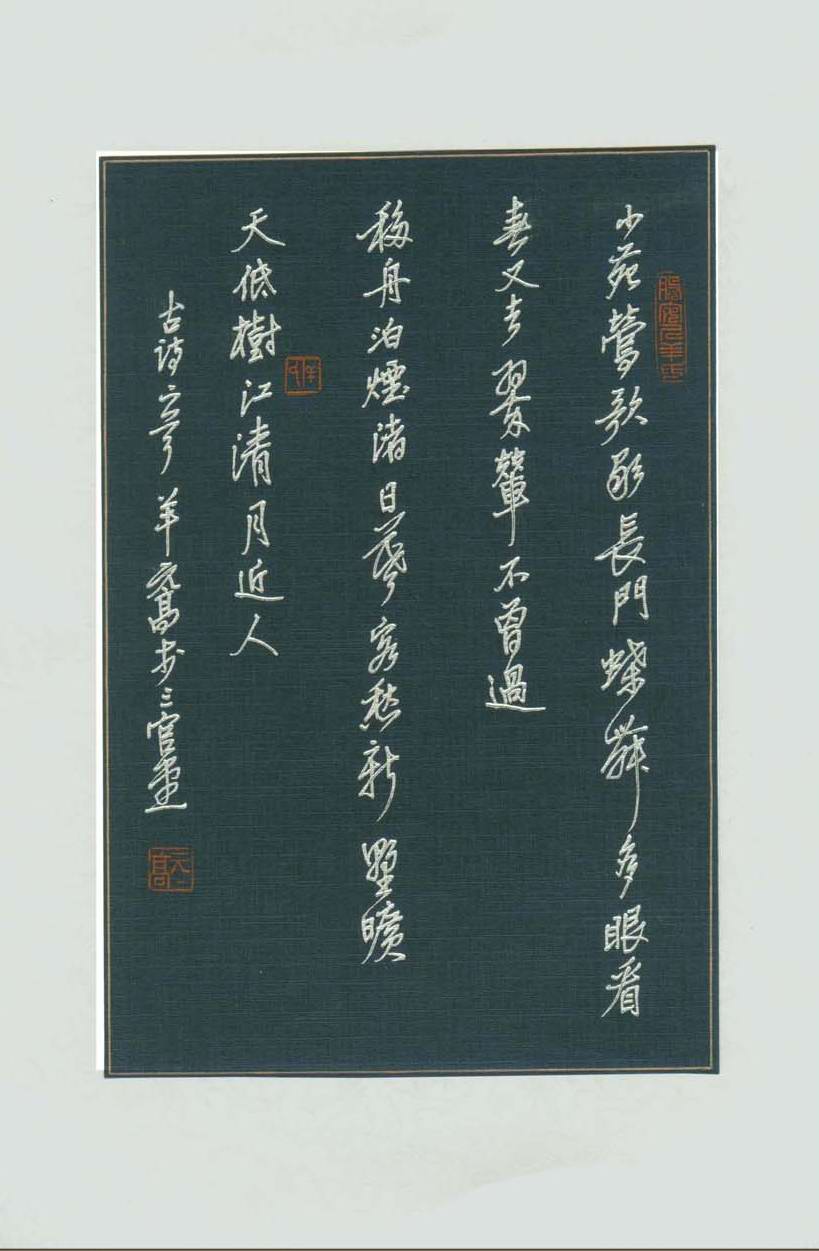 小苑鶯歌歇長門蝶舞多眼看
春又去翠輦不曾過
移舟泊煙渚日暮客愁新野曠
天低樹江清月近人
古詩二首羊元高书
元高